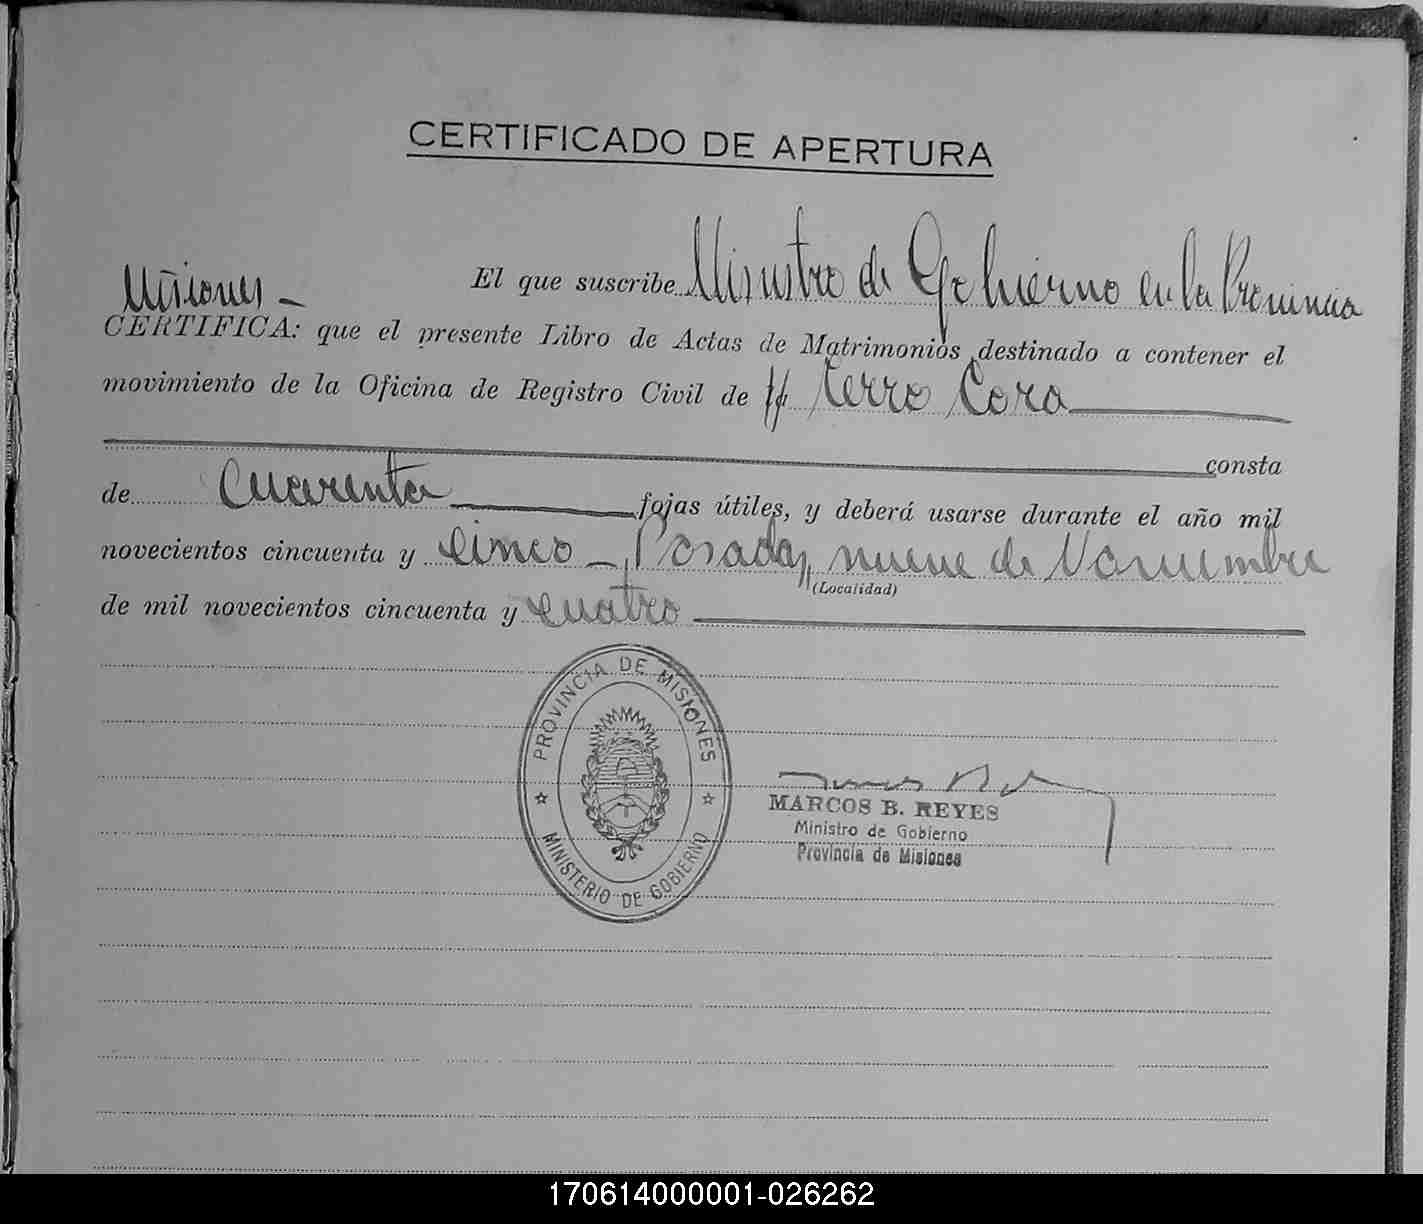 CERTIFICADO DE APERTURA
El que suscribe Ministro de Gobierno en la Provincia
Misiones –
CERTIFICA: que el presente Libro de Actas de Matrimonios destinado a contener el
movimiento de la Oficina de Registro Civil de Cerro Cora
consta
de cuarenta fojas útiles, y deberá usarse durante el año mil
novecientos cincuenta y cinco – Posadas, nueve de Noviembre
(Localidad)
de mil novecientos cincuenta y cuatro
PROVINCIA DE MISIONES
MINISTERIO DE GOBIERNO
MARCOS B. REYES
Ministro de Gobierno
Provincia de Misiones
170614000001-026262